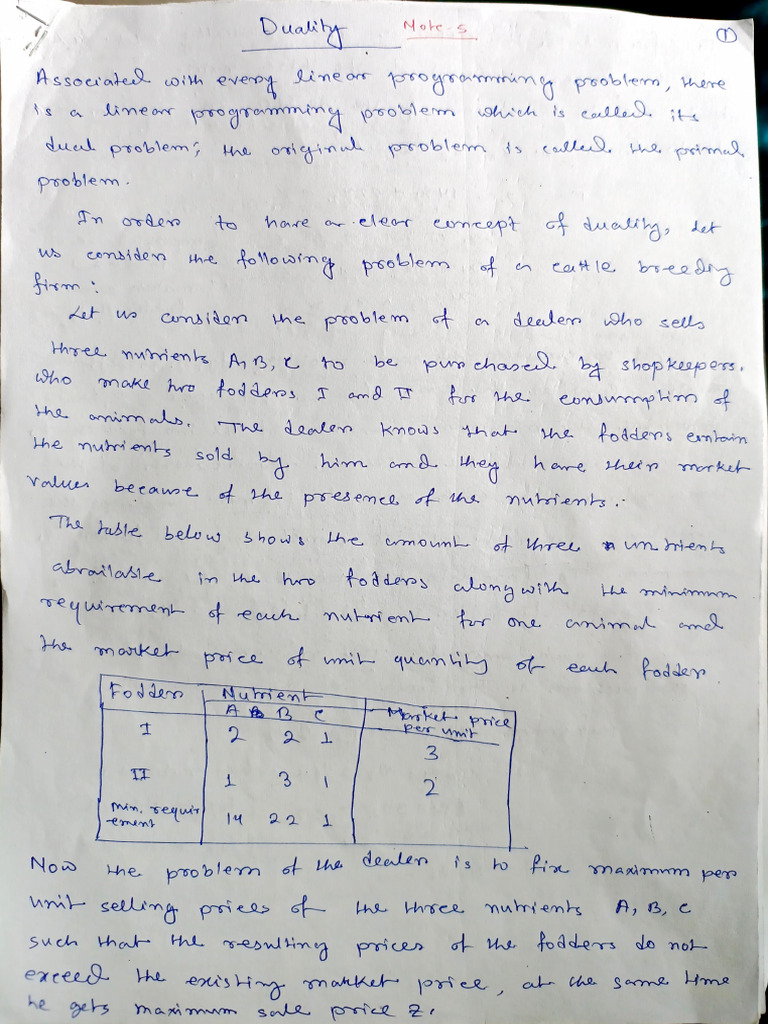 Duality Note-5 1
Associated with every linear programming problem, there
is a linear programming problem which is called its
dual problem; the original problem is called the primal
problem.
In order to have a clear concept of duality, Let
us consider the following problem of a cattle breeding
firm:
Let us consider the problem of a dealer who sells
three nutrients A, B, C to be purchased by shopkeepers.
who make two fodders I and II for the consumption of
the animals. The dealer knows that the fodders contain
the nutrients sold by him and they have their market
values because of the presence of the nutrients.
The table below shows the amount of three nutrients
abrailable in the two fodders alongwith the minimum
requirement of each nutrient for one animal and
the market price of unit quantity of each fodder
Fodder Nutrient
A B C Market price
per unit
I 2 2 1 3
II 1 3 1 2
Min. requir
ement 14 22 1
Now the problem of the dealer is to fix maximum per
unit selling prices of the three nutrients A, B, C
such that the resulting prices of the fodders do not
exceed the existing market price, at the same time
he gets maximum sale price Z.